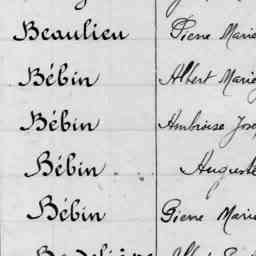 Beaulieu Pierre Marie
Bébin Albert Marie
Bébin Ambroise
Bébin Auguste
Bébin Pierre Marie